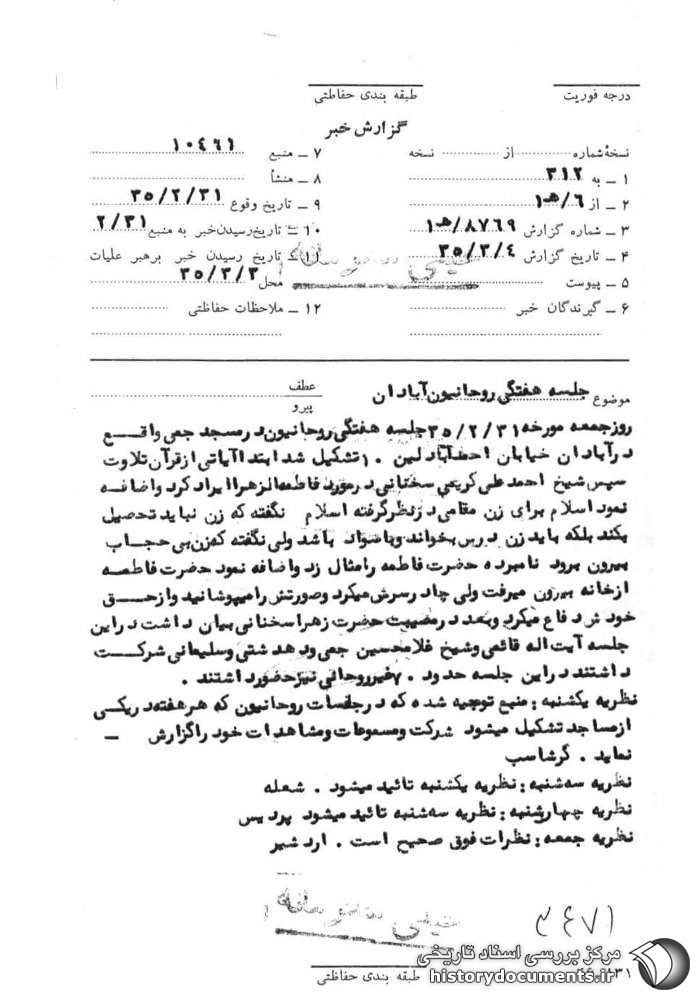 درجه فوریت
طبقه بندی حفاظتی
گزارش خبر
نسخهٔ شماره از نسخه
۱ ــ به ۳۱۲
۲ ــ از ۶/هـ۱
۳ ــ شماره گزارش ۸۷۶۹/هـ۱
۴ ــ تاریخ گزارش ۳۵/۳/۴
۵ ــ پیوست
۶ ــ گیرندگان خبر
۷ ــ منبع ۱۰۴۶۱
۸ ــ منشأ
۹ ــ تاریخ وقوع ۳۵/۲/۳۱
۱۰ ــ تاریخ رسیدن خبر به منبع ۲/۳۱
۱۱ ــ تاریخ رسیدن خبر برهبر عملیات
محل ۳۵/۳/۳
۱۲ ــ ملاحظات حفاظتی
موضوع جلسه هفتگی روحانیون آبادان
عطف
پیرو
روز جمعه مورخه ۳۵/۲/۳۱ جلسه هفتگی روحانیون در مسجد جمی واقع
در آبادان خیابان احمدآباد لین ۱۰ تشکیل شد ابتدا آیاتی از قرآن تلاوت
سپس شیخ احمد علی کریمی سخنانی در مورد فاطمه الزهرا ایراد کرد و اضافه
نمود اسلام برای زن مقامی در نظر گرفته اسلام نگفته که زن نباید تحصیل
بکند بلکه باید زن درس بخواند و باسواد باشد ولی نگفته که زن بی حجاب
بیرون برود نامبرده حضرت فاطمه را مثال زد و اضافه نمود حضرت فاطمه
از خانه بیرون میرفت ولی چادر سرش میکرد و صورتش را میپوشانید و از حق
خودش دفاع میکرد و بعد در مصیبت حضرت زهرا سخنانی بیان داشت در این
جلسه آیت اله قائمی و شیخ غلامحسین جمی و دهدشتی و سلیمانی شرکت
داشتند در این جلسه حدود نفر غیر روحانی نیز حضور داشتند .
نظریه یکشنبه : منبع توجیه شده که در جلسات روحانیون که هر هفته در یکی
از مساجد تشکیل میشود شرکت و مسموعات و مشاهدات خود را گزارش ــ
نماید . گرشاسب
نظریه سه شنبه : نظریه یکشنبه تائید میشود . شعله
نظریه چهارشنبه : نظریه سه شنبه تائید میشود پردیس
نظریه جمعه : نظرات فوق صحیح است . اردشیر
۳۶۷۱
طبقه بندی حفاظتی
مرکز بررسی اسناد تاریخی
historydocuments.ir